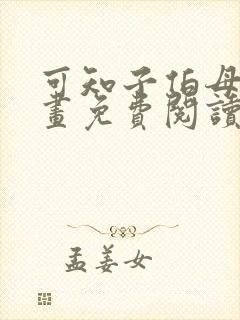 可知子伯母
畫免費閱讀
孟姜女